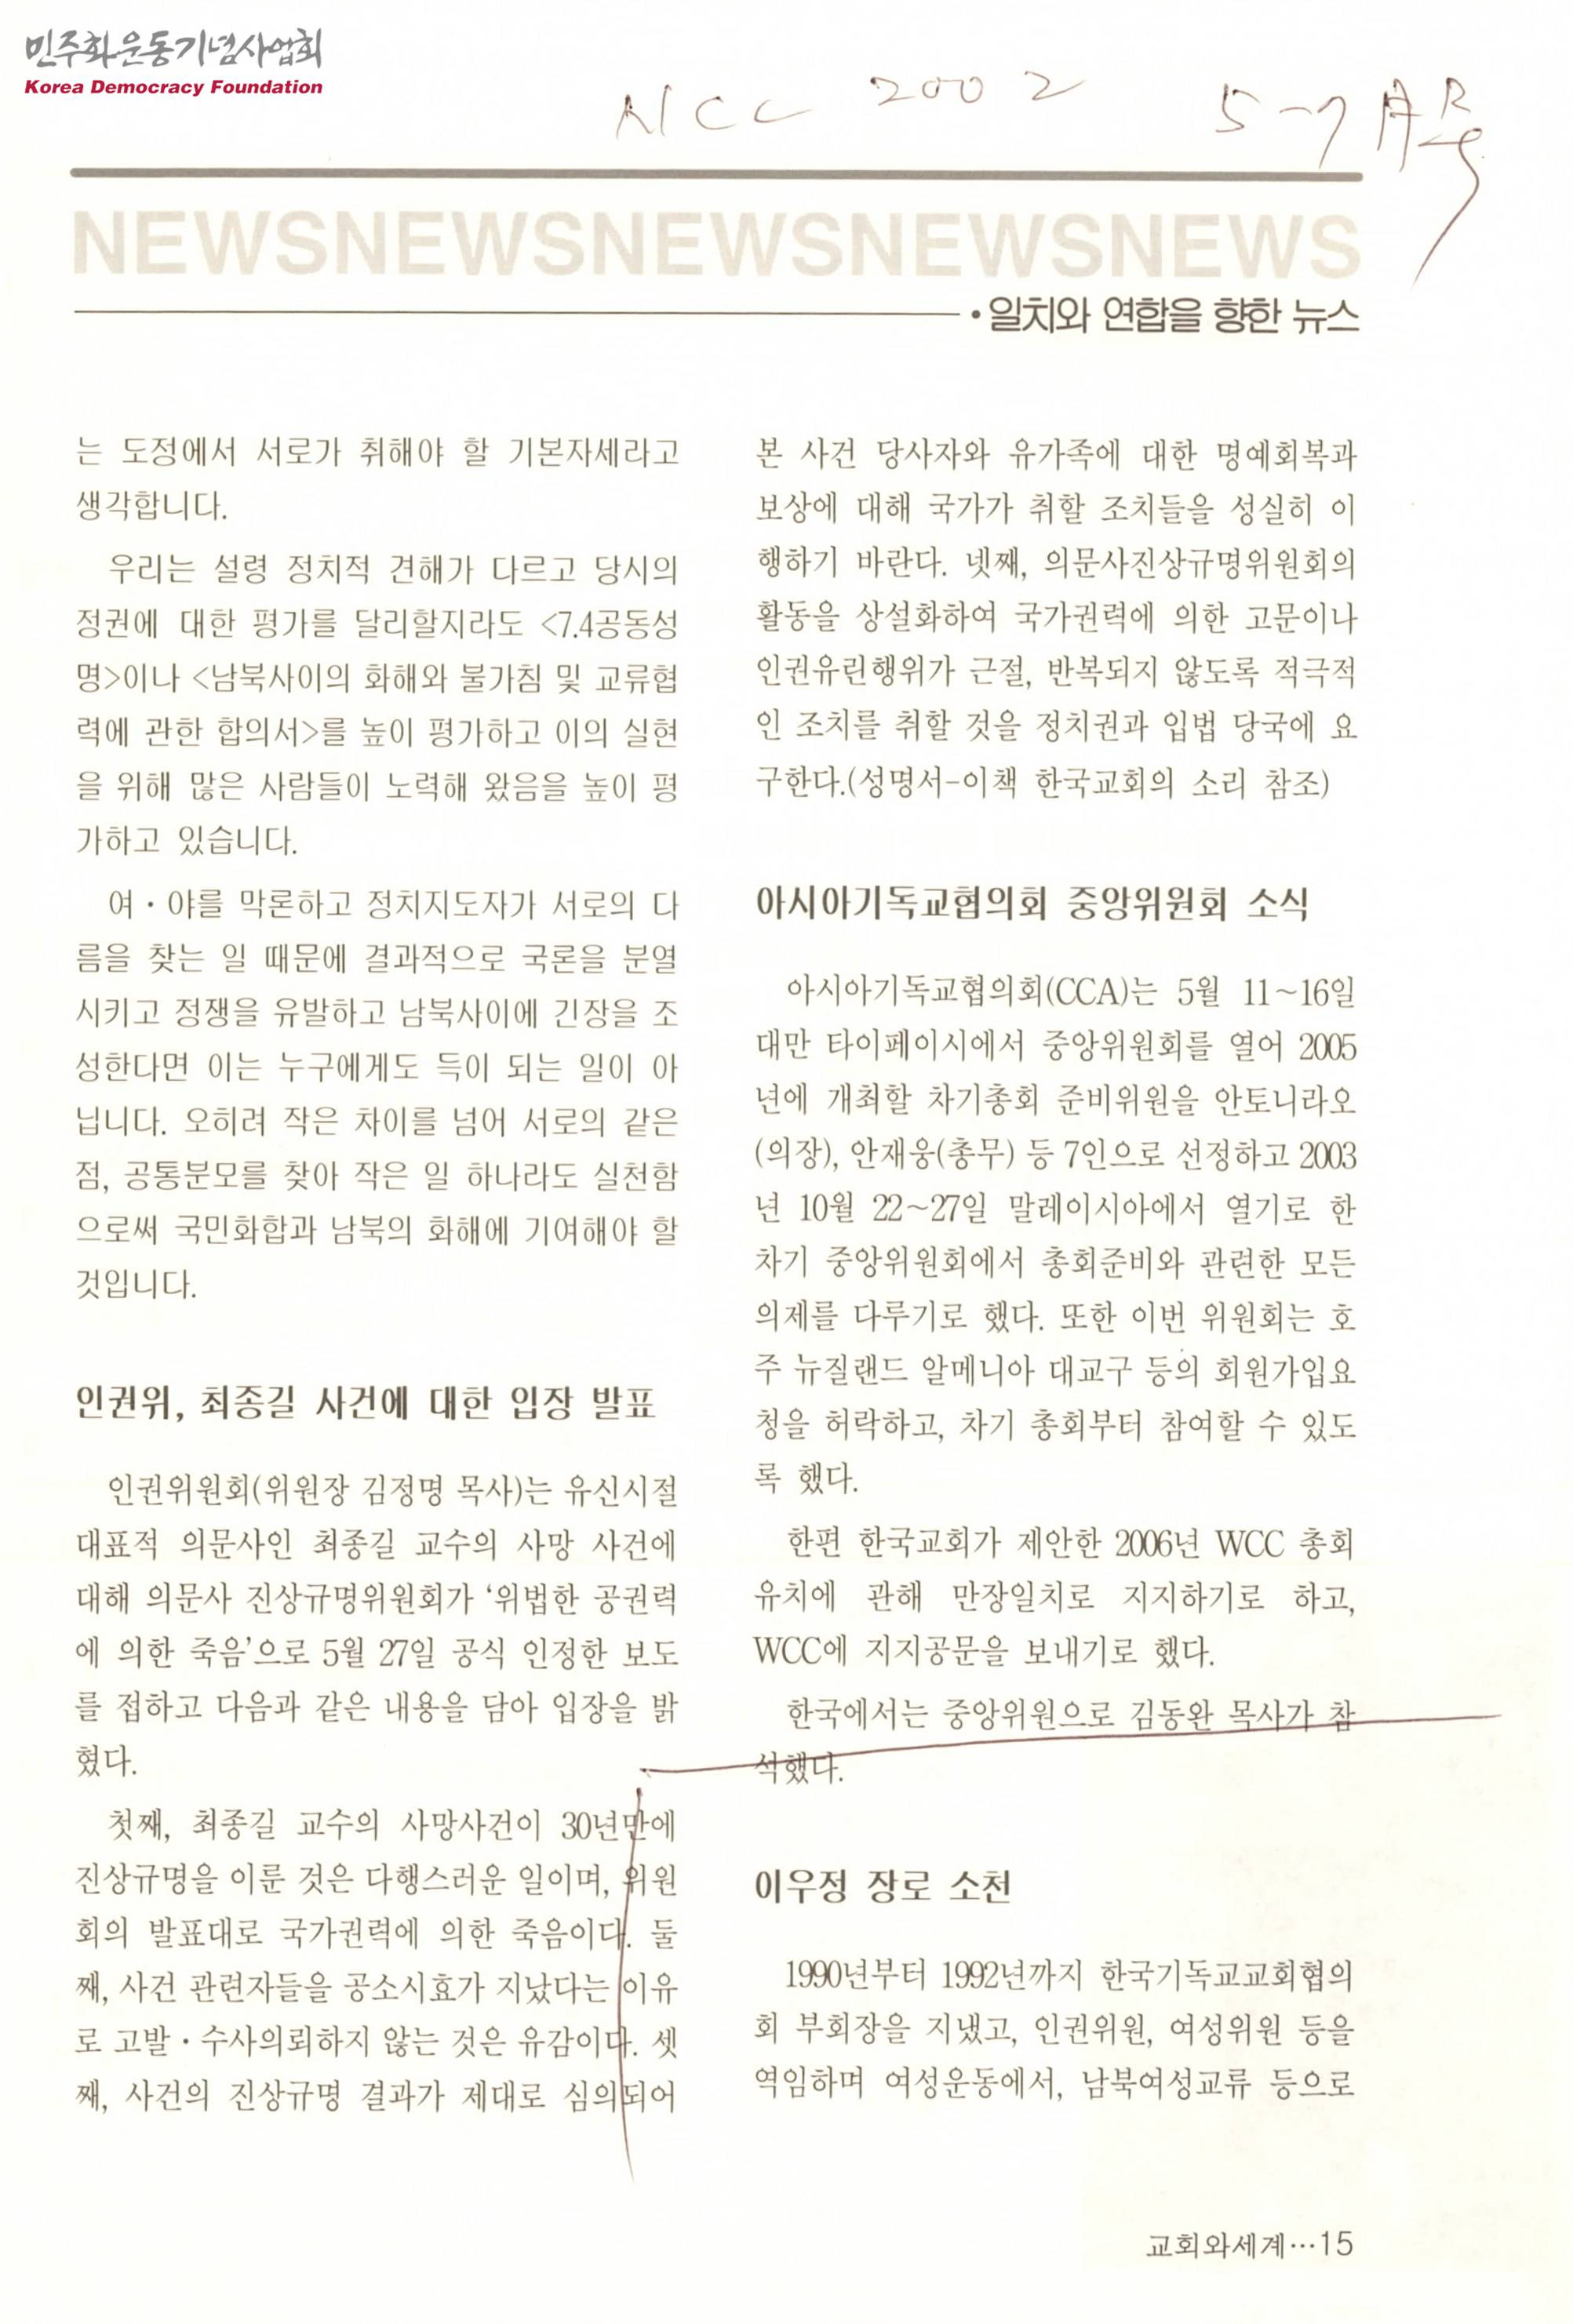 민주화운동기념사업회
Korea Democracy Foundation
NCC 2002 5-7月号
NEWSNEWSNEWSNEWSNEWS
•일치와 연합을 향한 뉴스
는 도정에서 서로가 취해야 할 기본자세라고
생각합니다.
우리는 설령 정치적 견해가 다르고 당시의
정권에 대한 평가를 달리할지라도 <7.4공동성
명>이나 <남북사이의 화해와 불가침 및 교류협
력에 관한 합의서>를 높이 평가하고 이의 실현
을 위해 많은 사람들이 노력해 왔음을 높이 평
가하고 있습니다.
여·야를 막론하고 정치지도자가 서로의 다
름을 찾는 일 때문에 결과적으로 국론을 분열
시키고 정쟁을 유발하고 남북사이에 긴장을 조
성한다면 이는 누구에게도 득이 되는 일이 아
닙니다. 오히려 작은 차이를 넘어 서로의 같은
점, 공통분모를 찾아 작은 일 하나라도 실천함
으로써 국민화합과 남북의 화해에 기여해야 할
것입니다.
인권위, 최종길 사건에 대한 입장 발표
인권위원회(위원장 김정명 목사)는 유신시절
대표적 의문사인 최종길 교수의 사망 사건에
대해 의문사 진상규명위원회가 ‘위법한 공권력
에 의한 죽음’으로 5월 27일 공식 인정한 보도
를 접하고 다음과 같은 내용을 담아 입장을 밝
혔다.
첫째, 최종길 교수의 사망사건이 30년만에
진상규명을 이룬 것은 다행스러운 일이며, 위원
회의 발표대로 국가권력에 의한 죽음이다. 둘
째, 사건 관련자들을 공소시효가 지났다는 이유
로 고발·수사의뢰하지 않는 것은 유감이다. 셋
째, 사건의 진상규명 결과가 제대로 심의되어
본 사건 당사자와 유가족에 대한 명예회복과
보상에 대해 국가가 취할 조치들을 성실히 이
행하기 바란다. 넷째, 의문사진상규명위원회의
활동을 상설화하여 국가권력에 의한 고문이나
인권유린행위가 근절, 반복되지 않도록 적극적
인 조치를 취할 것을 정치권과 입법 당국에 요
구한다.(성명서-이책 한국교회의 소리 참조)
아시아기독교협의회 중앙위원회 소식
아시아기독교협의회(CCA)는 5월 11~16일
대만 타이페이시에서 중앙위원회를 열어 2005
년에 개최할 차기총회 준비위원을 안토니라오
(의장), 안재웅(총무) 등 7인으로 선정하고 2003
년 10월 22~27일 말레이시아에서 열기로 한
차기 중앙위원회에서 총회준비와 관련한 모든
의제를 다루기로 했다. 또한 이번 위원회는 호
주 뉴질랜드 알메니아 대교구 등의 회원가입요
청을 허락하고, 차기 총회부터 참여할 수 있도
록 했다.
한편 한국교회가 제안한 2006년 WCC 총회
유치에 관해 만장일치로 지지하기로 하고,
WCC에 지지공문을 보내기로 했다.
한국에서는 중앙위원으로 김동완 목사가 참
석했다.
이우정 장로 소천
1990년부터 1992년까지 한국기독교교회협의
회 부회장을 지냈고, 인권위원, 여성위원 등을
역임하며 여성운동에서, 남북여성교류 등으로
교회와세계…15